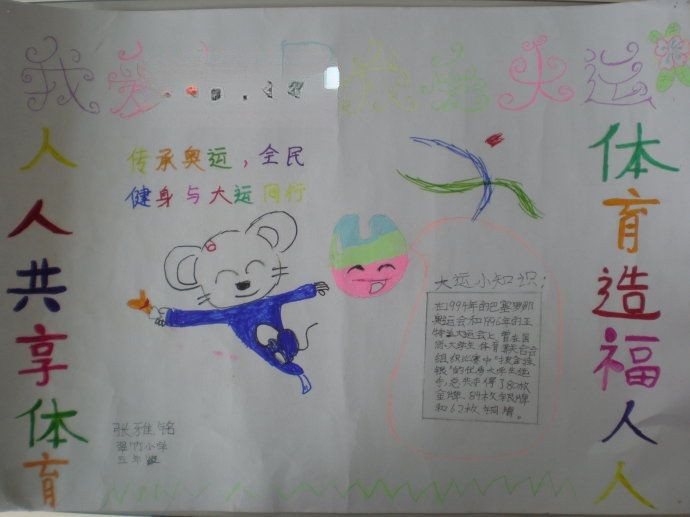 我爱
大运
人人共享体育
传承奥运，全民
健身与大运同行
体育造福人人
大运小知识：
在1994年的巴塞罗那
奥运会和1996年的亚
特兰大运会上，曾在国
际大学生体育联合会
组织比赛中"挂金挂
银"的优秀大学生选
手，总共夺得了80枚
金牌、84枚银牌
和67枚铜牌。
张雅铭
翠竹小学
五年